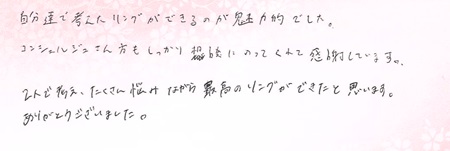 自分達で考えたリングができるのが魅力的でした。
コンシェルジュさん方もしっかり相談にのってくれて感謝しています。
2人で考え、たくさん悩みながら最高のリングができたと思います。
ありがとうございました。